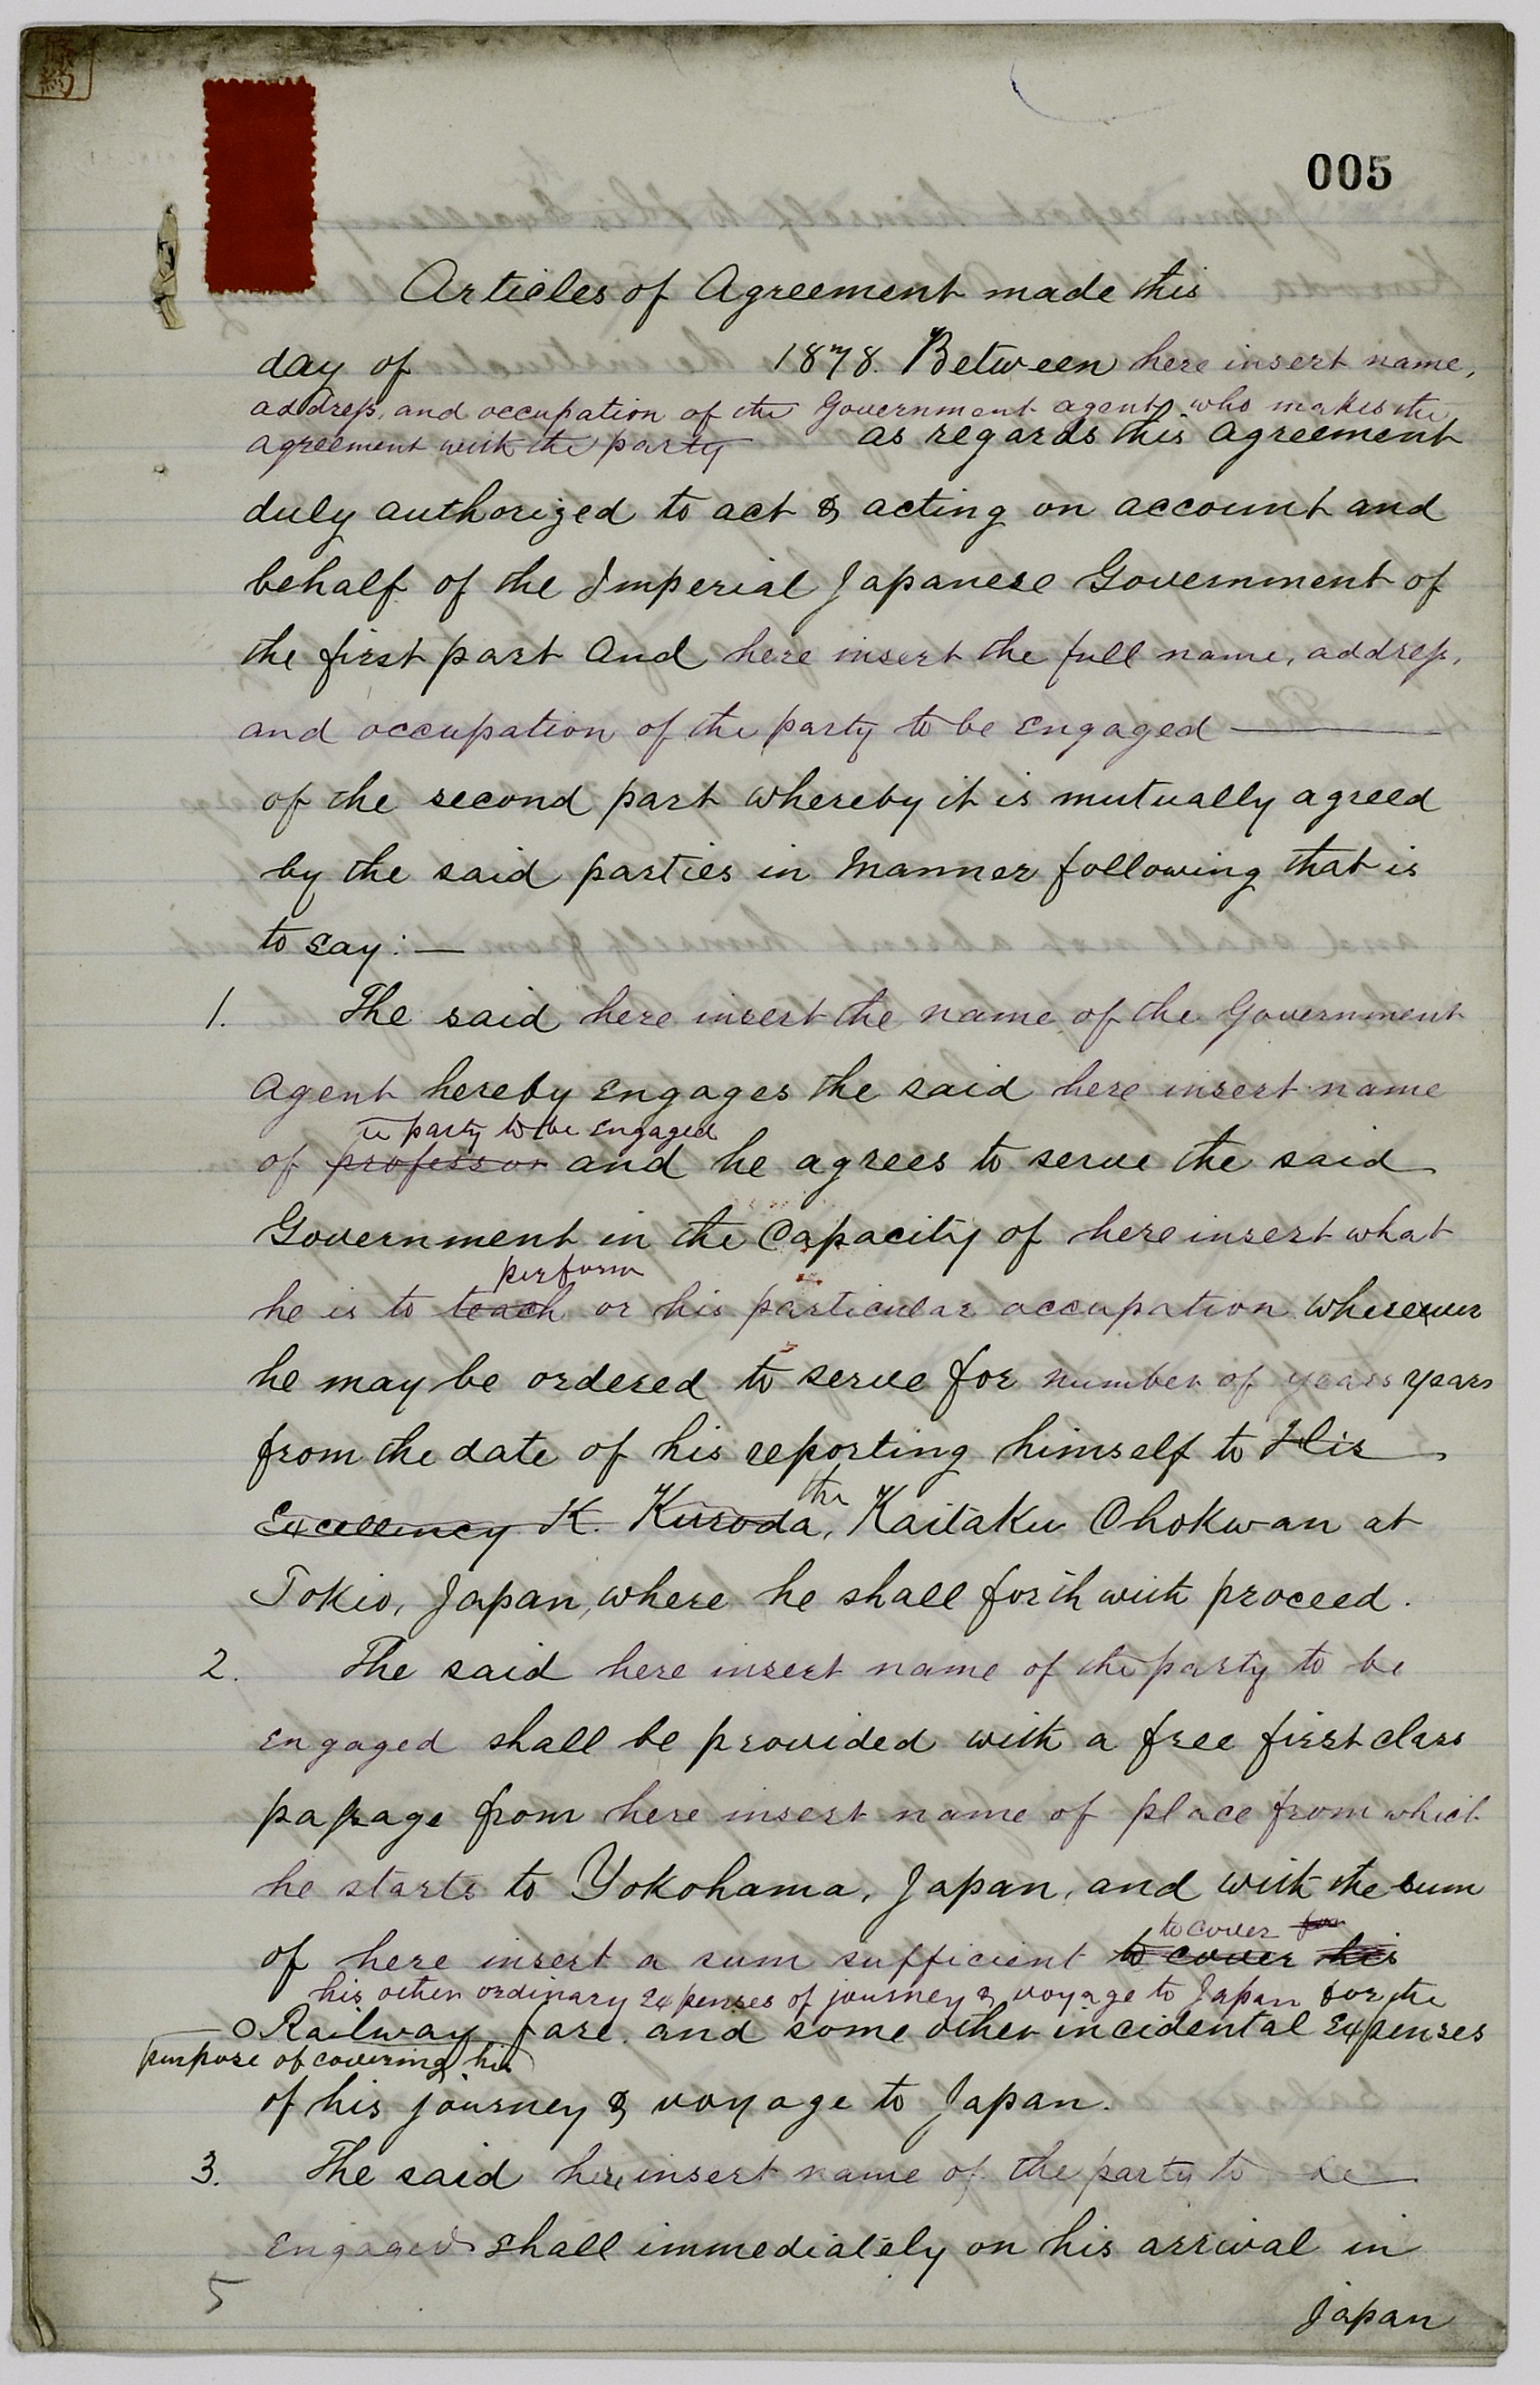 005
Articles of Agreement made this
day of 1878. Between here insert name,
address, and occupation of the Government agent who makes the
agreement with the party as regards this agreement
duly authorized to act & acting on account and
behalf of the Imperial Japanese Government of
the first part And here insert the full name, address,
and occupation of the party to be engaged
of the second part whereby it is mutually agreed
by the said parties in manner following that is
to say: —
1. The said here insert the name of the Government
Agent hereby engages the said here insert name
party to be engaged
of professor and he agrees to serve the said
Government in the Capacity of here insert what
perform
he is to teach or his particular occupation wherever
he may be ordered to serve for number of years years
from the date of his reporting himself to His
the
Excellency K. Kuroda, Kaitaku Chokwan at
Tokio, Japan, where he shall forthwith proceed.
2. The said here insert name of the party to be
engaged shall be provided with a free first class
passage from here insert name of place from which
he starts to Yokohama, Japan, and with the sum
to cover for
of here insert a sum sufficient to cover his
his other ordinary expenses of journey & voyage to Japan for the
Railway fare and some other incidental expenses
purpose of covering his
of his journey & voyage to Japan.
3. The said here insert name of the party to be
engaged shall immediately on his arrival in
5
Japan